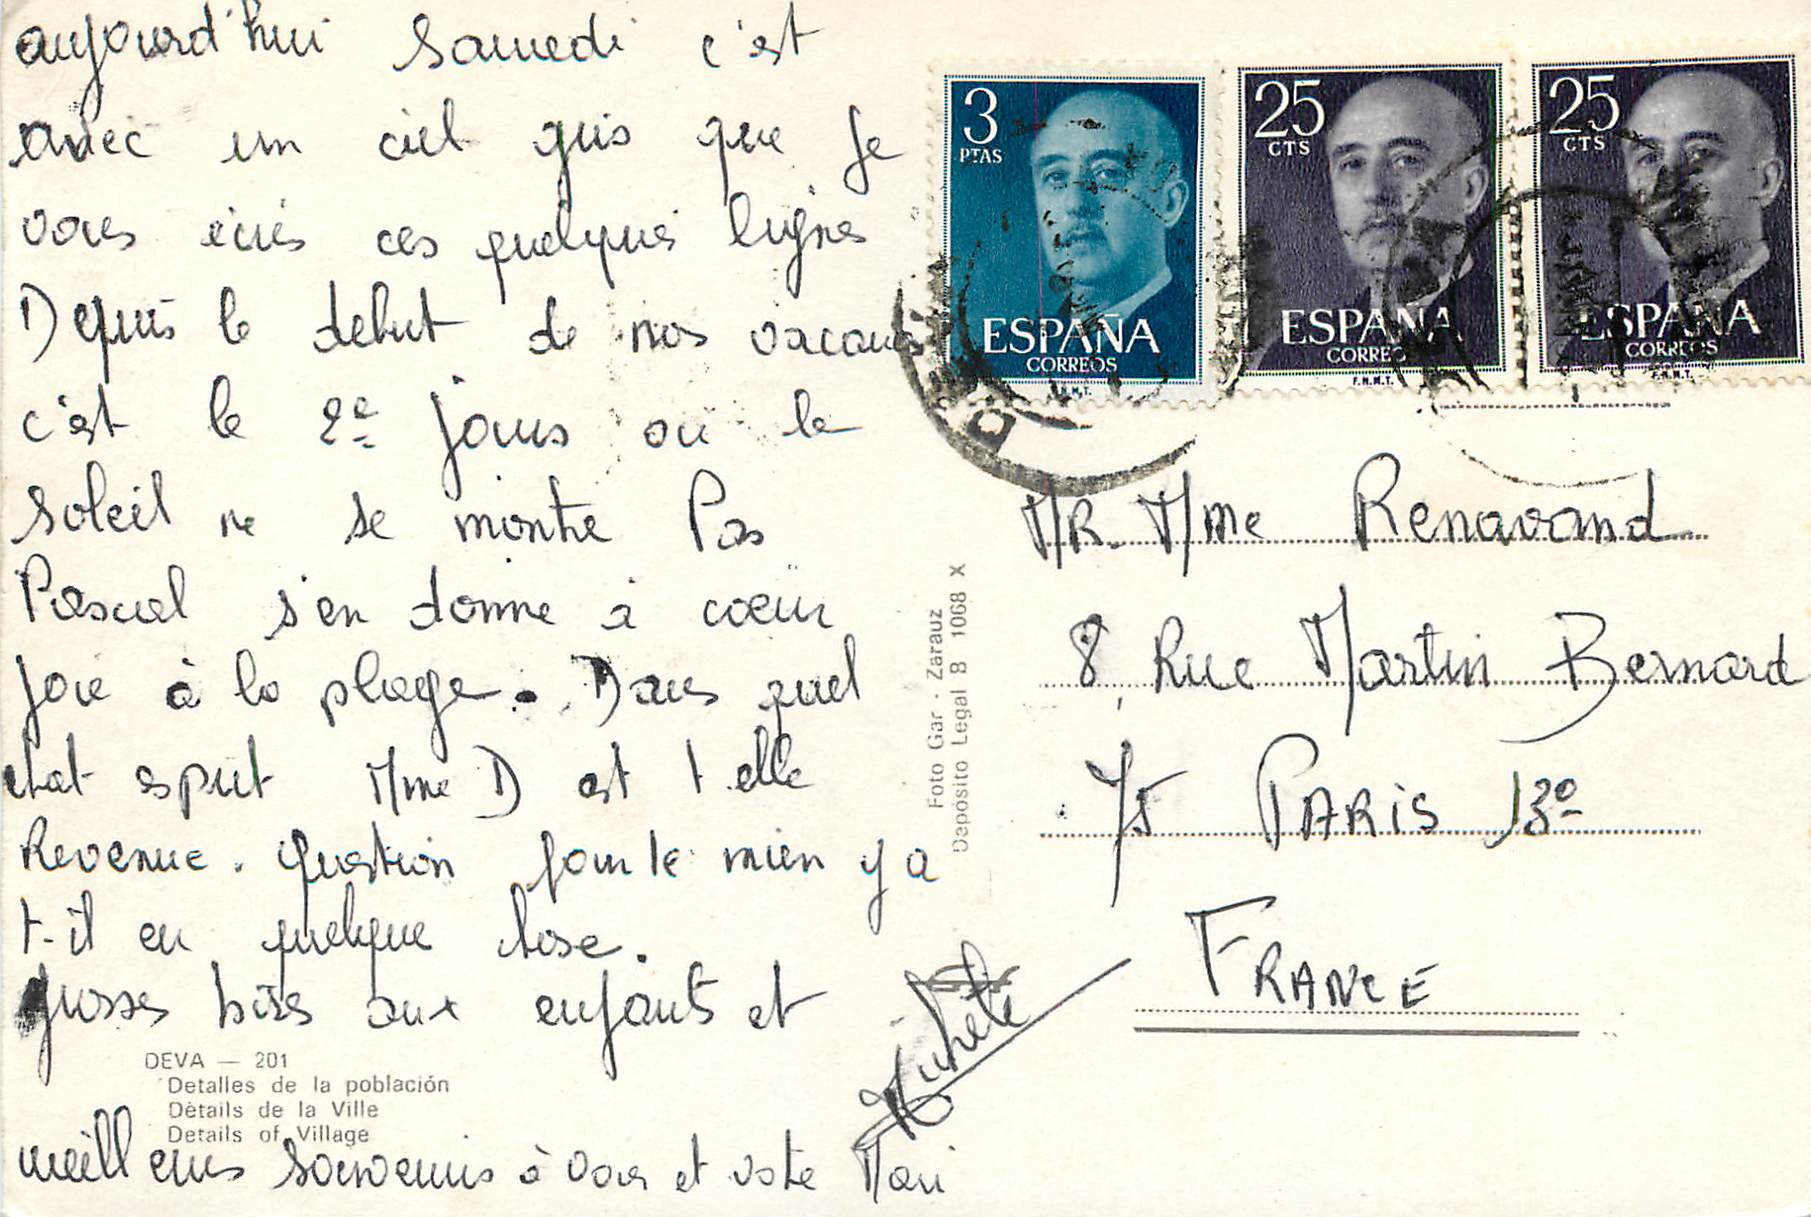 aujourd'hui Samedi c'est
avec un ciel gris que je
vous écris ces quelques lignes
Depuis le debut de nos vacances
c'est le 2e jours ou le
Soleil ne se montre Pas
Pascal s'en donne à coeur
joie à la plage. Dans quel
etat esprit Mme D est t elle
Revenue. question pour le mien y a
t-il eu quelque chose.
grosses bises aux enfants et
meilleurs Souvenirs à vous et votre Mari
Michete
DEVA — 201
Detalles de la población
Dètails de la Ville
Details of Village
Foto Gar - Zarauz
Depósito Legal B 1068 X
3
PTAS
ESPAÑA
CORREOS
F.N.M.T.
25
CTS
ESPAÑA
CORREOS
F.N.M.T.
25
CTS
ESPAÑA
CORREOS
F.N.M.T.
MR. Mme Renavand
8 Rue Martin Bernard
75 PARIS 13e
FRANCE